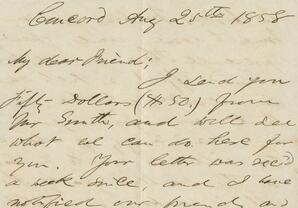 Concord Aug 25th 1858
My dear Friend;
I send you
Fifty Dollars ($50.) from
Mr Smith, and will see
what we can do here for
you. Your letter was rec'd
a week since, and I have
notified our friend